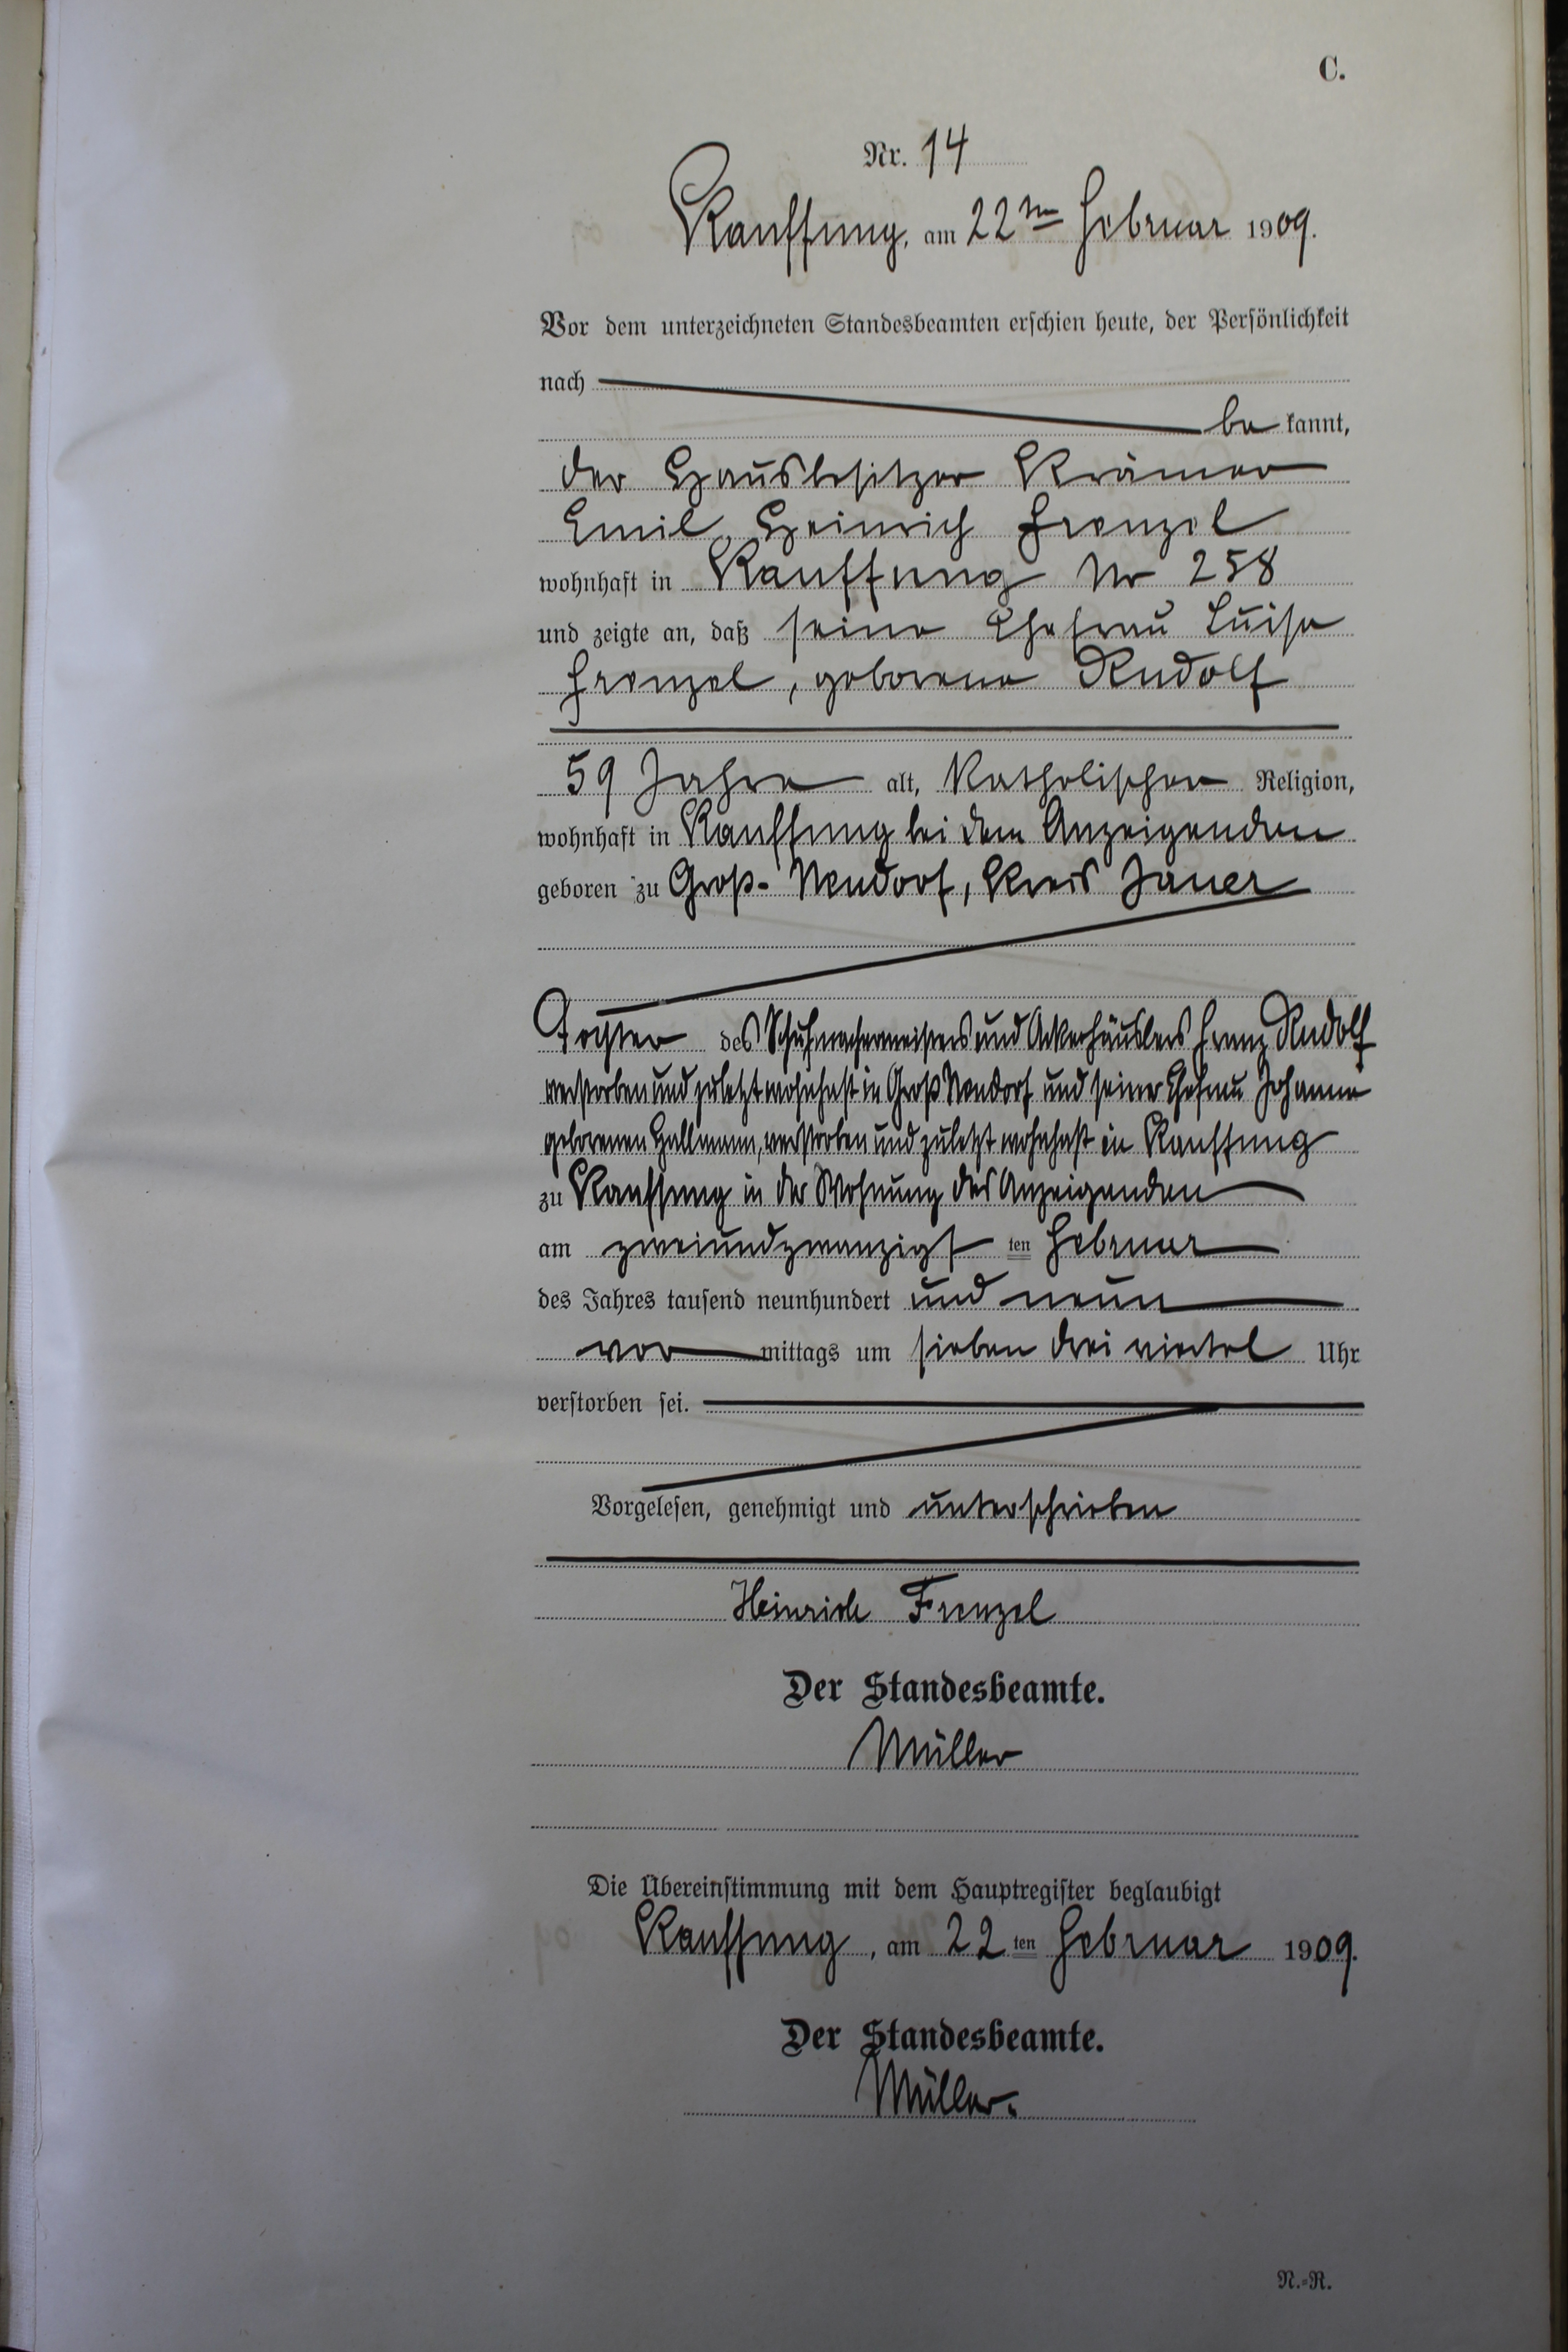 C.
Nr. 14
Kauffung, am 22ten Februar 1909.
Vor dem unterzeichneten Standesbeamten erschien heute, der Persönlichkeit
nach
be kannt,
der Hausbesitzer Krämer
Emil Heinrich Frenzel
wohnhaft in Kauffung Nr 258
und zeigte an, daß seine Ehefrau Luise
Frenzel, geborene Rudolf
59 Jahre alt, Katholischer Religion,
wohnhaft in Kauffung bei dem Anzeigenden
geboren zu Groß-Neudorf, Kreis Jauer
Tochter des Schuhmachermeisters und Ackerhäuslers Franz Rudolf
verstorben und zuletzt wohnhaft in Groß Neudorf und seiner Ehefrau Johanne
geborenen Hallmann, verstorben und zuletzt wohnhaft in Kauffung
zu Kauffung in der Wohnung des Anzeigenden
am zweiundzwanzigsten Februar
des Jahres tausend neunhundert und neun
vor mittags um sieben drei viertel Uhr
verstorben sei.
Vorgelesen, genehmigt und unterschrieben
Heinrich Frenzel
Der Standesbeamte.
Müller
Die Übereinstimmung mit dem Hauptregister beglaubigt
Kauffung, am 22ten Februar 1909.
Der Standesbeamte.
Müller.
N.-R.